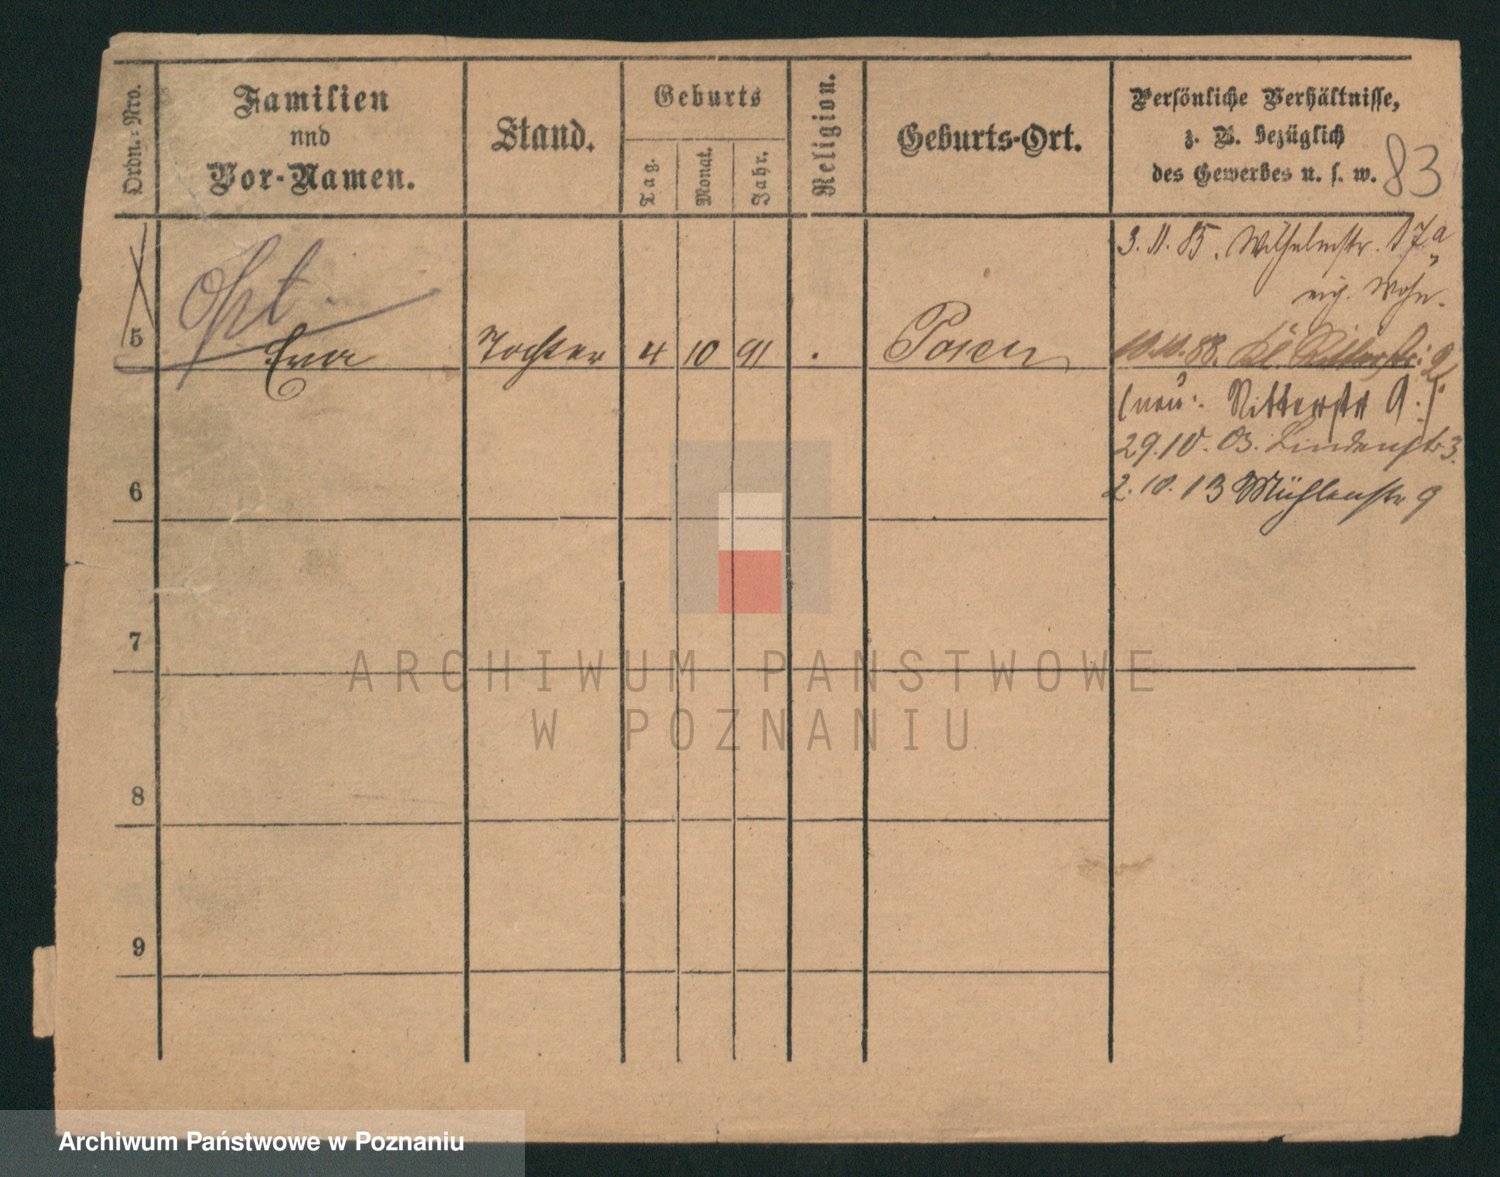 Ordn.-Nro.
Familien
und
Vor-Namen.
Stand.
Geburts
Tag.
Monat.
Jahr.
Religion.
Geburts-Ort.
Persönliche Verhältnisse,
z. B. bezüglich
des Gewerbes u. s. w.
83
3.11.85. Wilhelmstr. 17a
eig. Wohn.
Opt.
5 Eva Tochter 4 10 91 . Posen
10.10.88. Kl. Ritterstr. 2
(neu: Ritterstr 9.)
29.10.03. Lindenstr 3.
6
2.10.13 Mühlenstr 9
7
ARCHIWUM PAŃSTWOWE
W POZNANIU
8
9
Archiwum Państwowe w Poznaniu